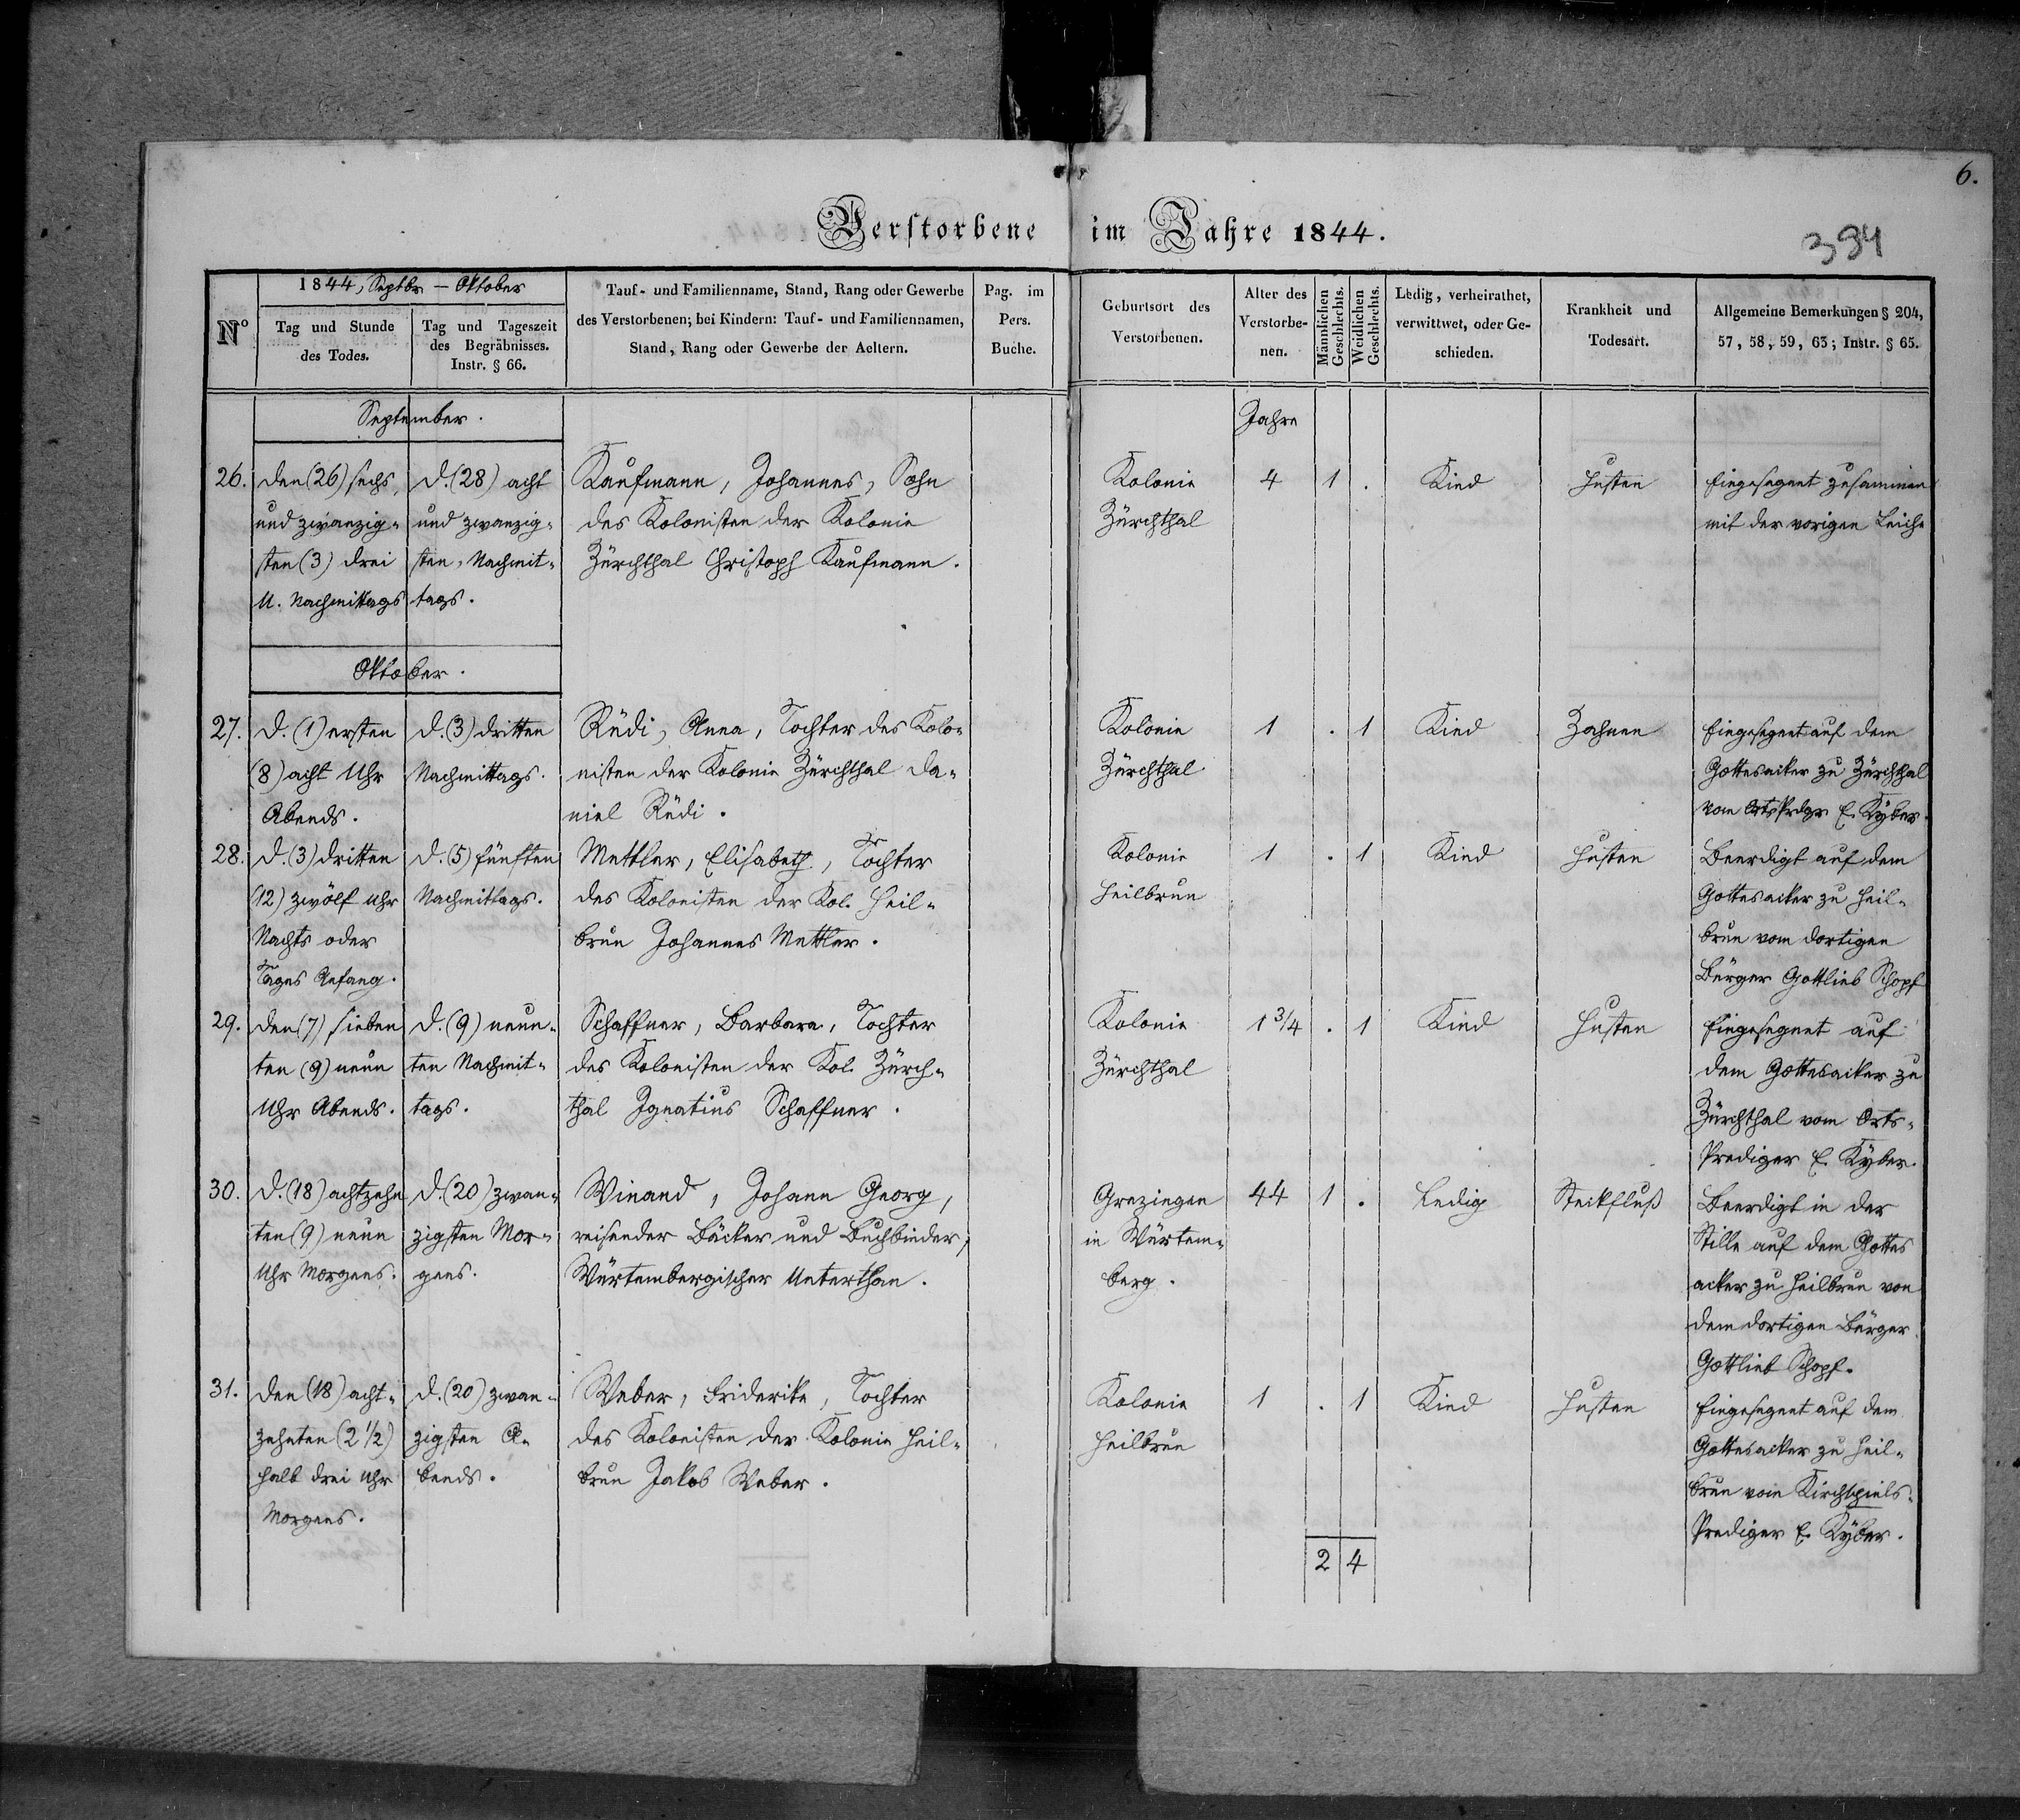 6.
Verstorbene im Jahre 1844.
394
No
1844, Septbr – Oktober
Tag und Stunde
des Todes.
Tag und Tageszeit
des Begräbnisses.
Instr. § 66.
Tauf- und Familienname, Stand, Rang oder Gewerbe
des Verstorbenen; bei Kindern: Tauf- und Familiennamen,
Stand, Rang oder Gewerbe der Aeltern.
Pag. im
Pers.
Buche.
Geburtsort des
Verstorbenen.
Alter des
Verstorbe-
nen.
Männlichen
Geschlechts.
Weidlichen
Geschlechts.
Ledig, verheirathet,
verwittwet, oder Ge-
schieden.
Krankheit und
Todesart.
Allgemeine Bemerkungen § 204,
57, 58, 59, 63; Instr. § 65.
September.
Jahre
26.
den (26) sechs
und zwanzig-
sten (3) drei
U. Nachmittags
d. (28) acht
und zwanzig-
sten, Nachmit-
tags.
Kaufmann, Johannes, Sohn
des Kolonisten der Kolonie
Zürchthal Christoph Kaufmann.
Kolonie
Zürchthal
4
1
.
Kind
Husten
Eingesegnet zusammen
mit der vorigen Leiche
Oktober.
27.
d. (1) ersten
(8) acht Uhr
Abends.
d. (3) dritten
Nachmittags.
Rüdi, Anna, Tochter des Kolo-
nisten der Kolonie Zürchthal Da-
niel Rüdi.
Kolonie
Zürchthal
1
.
1
Kind
Zahnen
Eingesegnet auf dem
Gottesacker zu Zürchthal
vom OrtsPrdgr E. Kyber.
28.
d. (3) dritten
(12) zwölf Uhr
Nachts oder
Tages Anfang.
d. (5) fünften
Nachmittags.
Mettler, Elisabeth, Tochter
des Kolonisten der Kol. Heil-
brun Johannes Mettler.
Kolonie
Heilbrun
1
.
1
Kind
Husten
Beerdigt auf dem
Gottesacker zu Heil-
brun vom dortigen
Bürger Gottlieb Schopf
29.
den (7) sieben
ten (9) neun
Uhr Abends.
d. (9) neun-
ten Nachmit-
tags.
Schaffner, Barbara, Tochter
des Kolonisten der Kol. Zürch-
thal Ignatius Schaffner.
Kolonie
Zürchthal
1 3/4
.
1
Kind
Husten
Eingesegnet auf
dem Gottesacker zu
Zürchthal vom Orts-
Prediger E. Kyber.
30.
d. (18) achtzehn
ten (9) neun
Uhr Morgens.
d. (20) zwan-
zigsten Mor-
gens.
Winand, Johann Georg,
reisender Bäcker und Buchbinder,
Würtembergischer Unterthan.
Grezingen
in Würtem-
berg.
44
1
.
Ledig
Steckfluß
Beerdigt in der
Stille auf dem Gottes
acker zu Heilbrun von
dem dortigen Bürger
Gottlieb Schopf.
31.
den (18) acht-
zehnten (2 1/2)
halb drei Uhr
Morgens.
d. (20) zwan-
zigsten A-
bends.
Weber, Friderike, Tochter
des Kolonisten der Kolonie Heil-
brun Jakob Weber.
Kolonie
Heilbrun
1
.
1
Kind
Husten
Eingesegnet auf dem
Gottesacker zu Heil-
brun vom Kirchspiels-
Prediger E. Kyber.
2 4